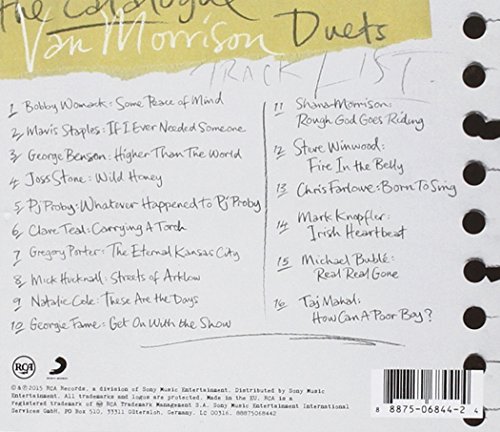 the Catalogue
Van Morrison Duets
TRACK LIST.
1 Bobby Womack: Some Peace of Mind
2 Mavis Staples: If I Ever Needed Someone
3 George Benson: Higher Than The World
4 Joss Stone: Wild Honey
5 PJ Proby: Whatever Happened to PJ Proby
6 Clare Teal: Carrying A Torch
7 Gregory Porter: The Eternal Kansas City
8 Mick Hucknall: Streets of Arklow
9 Natalie Cole: These Are the Days
10 Georgie Fame: Get On With the Show
11 Shana Morrison:
Rough God Goes Riding
12 Steve Winwood:
Fire In the Belly
13 Chris Farlowe: Born To Sing
14 Mark Knopfler:
Irish Heartbeat
15 Michael Bublé:
Real Real Gone
16 Taj Mahal:
How Can A Poor Boy?
RCA
SONY MUSIC
℗ & © 2015 RCA Records, a division of Sony Music Entertainment. Distributed by Sony Music
Entertainment. All trademarks and logos are protected. Made in the EU. RCA is a
registered trademark of RCA Trademark Management S.A. Sony Music Entertainment International
Services GmbH, PO Box 510, 33311 Gütersloh, Germany. LC 00316. 88875068442
8 88750 68442 4